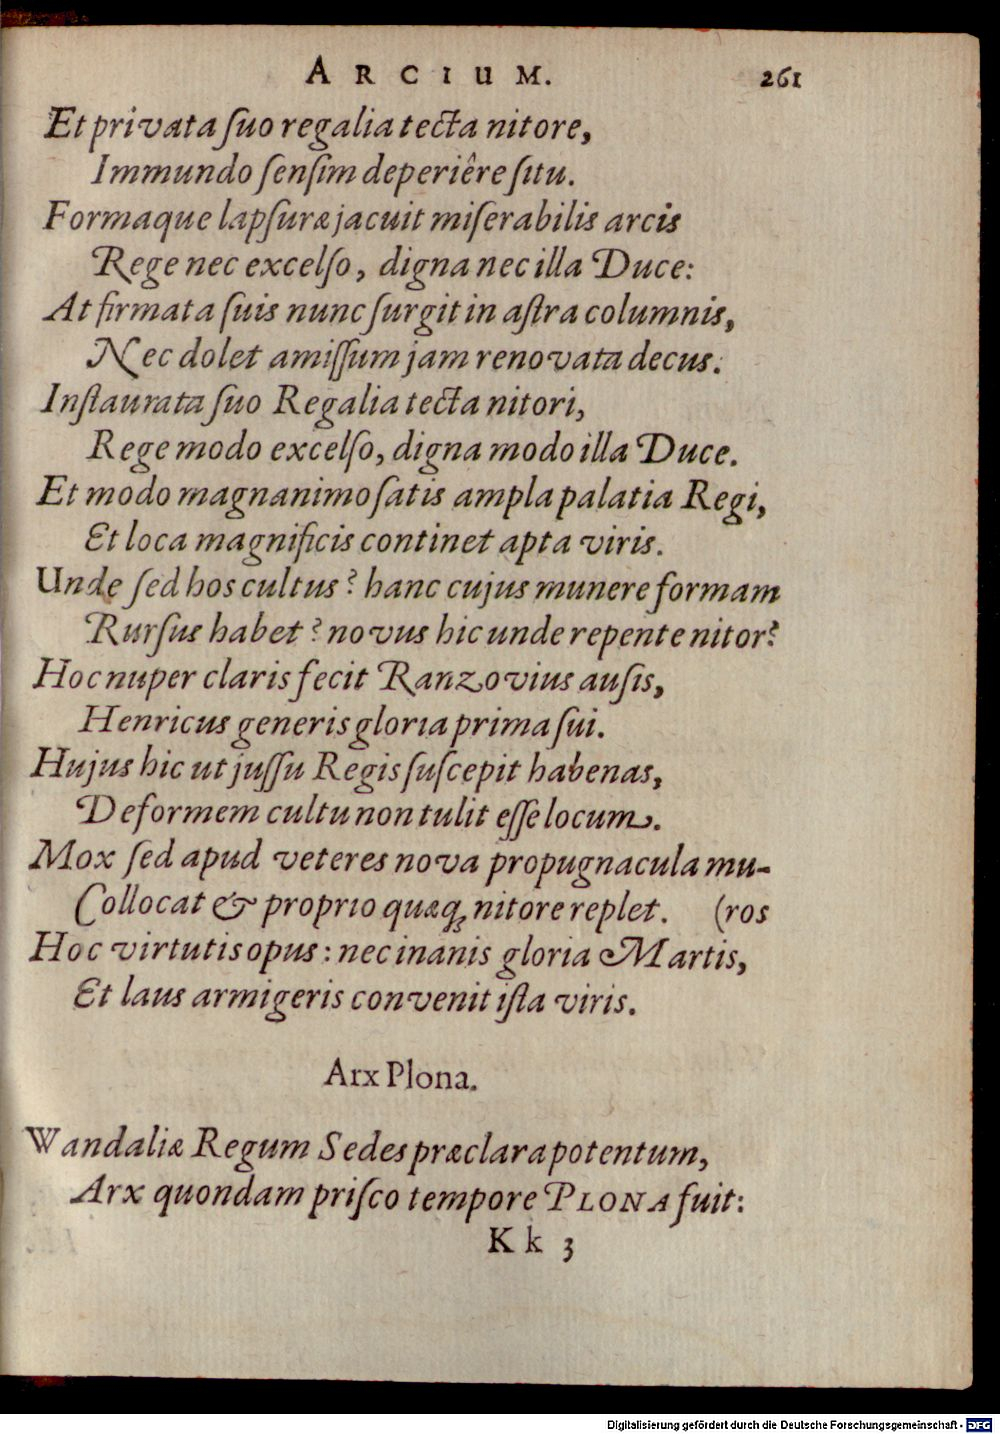 ARCIUM. 261
Et privata ſuo regalia tecta nitore,
Immundo ſenſim deperiêre ſitu.
Formaque lapſuræ jacuit miſerabilis arcis
Rege nec excelſo, digna nec illa Duce:
At firmata ſuis nunc ſurgit in aſtra columnis,
Nec dolet amiſſum jam renovata decus.
Inſtaurata ſuo Regalia tecta nitori,
Rege modo excelſo, digna modo illa Duce.
Et modo magnanimo ſatis ampla palatia Regi,
Et loca magnificis continet apta viris.
Unde ſed hos cultus? hanc cujus munere formam
Rurſus habet? novus hic unde repente nitor?
Hoc nuper claris fecit Ranzovius auſis,
Henricus generis gloria prima ſui.
Hujus hic ut juſſu Regis ſuſcepit habenas,
Deformem cultu non tulit eſſe locum.
Mox ſed apud veteres nova propugnacula mu-
Collocat & proprio quæq; nitore replet. (ros
Hoc virtutis opus: nec inanis gloria Martis,
Et laus armigeris convenit iſta viris.
Arx Plona.
Wandaliæ Regum Sedes præclara potentum,
Arx quondam priſco tempore PLONA fuit:
Kk 3
Digitalisierung gefördert durch die Deutsche Forschungsgemeinschaft - DFG